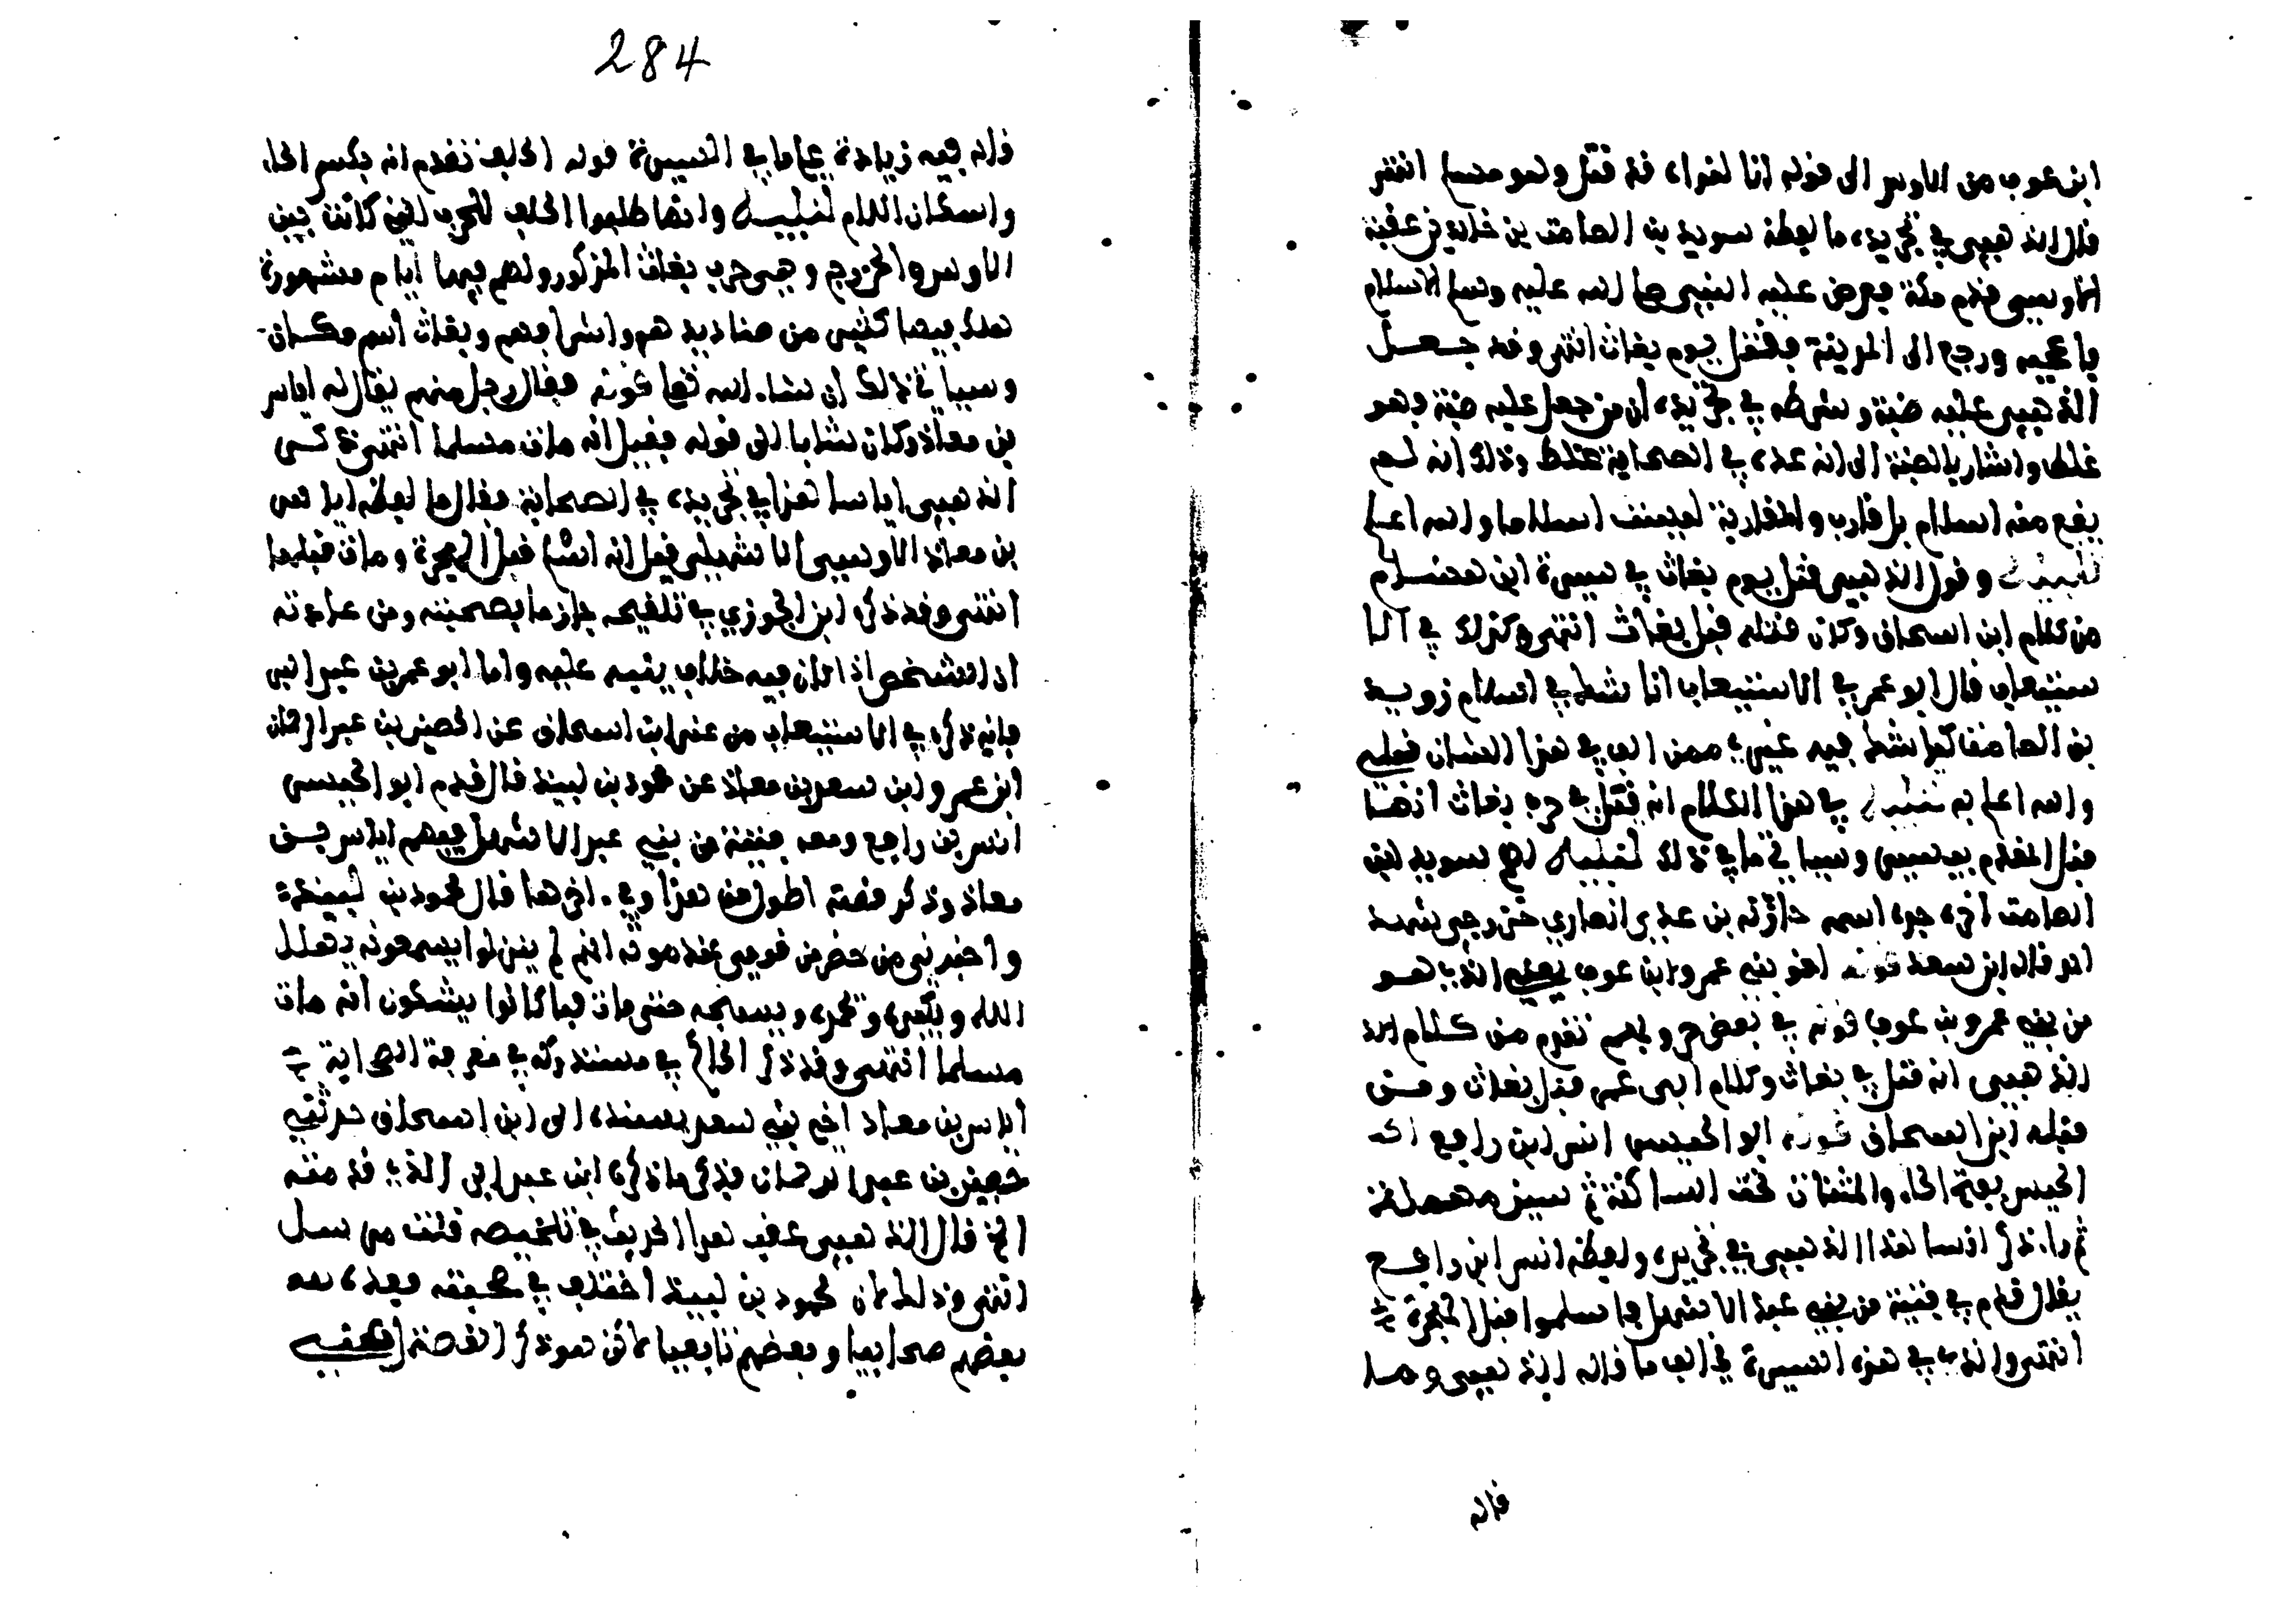 ابن عوف من الاوس الى قوله انا لنراه قد قتل وهو مسلم انتهى
قال الذهبي في تجريده ما لفظه سويد بن الصامت بن خالد بن عقبة
الاوسي قدم مكة فعرض عليه النبي صلى الله عليه وسلم الاسلام
فاعجبه ورجع الى المدينة فقتل يوم بعاث انتهى وقد جعل
الذهبي عليه ضبة وشرطه في تجريده ان من جعل عليه ضبة فهو
غلط واشار بالضبة الى ان عده في الصحابة غلط وذلك انه لم
يقع منه اسلام بل قارب والمقاربة ليست اسلاما والله اعلم
تنبيه وقول الذهبي قتل يوم بعاث في سيرة ابن هشام
من كلام ابن اسحاق وكان قتله قبل بعاث انتهى وكذلك في الا
ستيعاب قال ابو عمر في الاستيعاب انا شك في اسلام سويد
بن الصامت كما شك فيه غيري ممن الف في هذا الشان قبلي
والله اعلم به تنبيه في هذا الكلام انه قتل في حرب بعاث انما
قتل المقدم بيسير وسياتي ما في ذلك تنبيه لهم سويد بن
الصامت اخر جده اسمه حارثة بن عدي انصاري خزرجي شهد
احد قاله ابن سعد قوله اخو بني عمرو ابن عوف يعني الذي هو
من بني عمرو بن عوف قوله في بعض حروبهم تقدم من كلام
الذهبي انه قتل في بعاث وكلام ابي عمر قبل بعاث ومن
قبله ابن اسحاق قوله ابو الحيسر انس ابن رافع
الحيسر بفتح الحاء والمثناة تحت الساكنة ثم سين مهملة
ثم راء ذكر انسا هذا الذهبي في تجريده ولفظه انس ابن رافع
يقال قدم في فتية من بني عبد الاشهل فاسلموا قبل الهجرة
انتهى والذي في هذه السيرة يخالف ما قاله الذهبي
قاله
284
قاله فيه زيادة على ما في السيرة قوله الحلف تقدم انه بكسر الحاء
واسكان اللام تنبيه وانما طلبوا الحلف للحرب التي كانت بين
الاوس والخزرج وهي حرب بعاث المذكور ولهم فيها ايام مشهورة
هلك فيها كثير من صناديدهم واشرافهم وبعاث اسم مكان
وسياتي ذلك ان شاء الله تعالى قوله فقال رجل منهم يقال له اياس
بن معاذ وكان شابا الى قوله فقيل انه مات مسلما انتهى ذكر
الذهبي اياسا هذا في تجريده في الصحابة فقال ما لفظه اياس
بن معاذ الاوسي الاشهلي قيل انه اسلم قبل الهجرة ومات قبلها
انتهى وقد ذكره ابن الجوزي في تلقيحه جازما بصحبته ومن عادته
ان الشخص اذا كان فيه خلاف ينبه عليه واما ابو عمر بن عبد البر
فانه ذكره في الاستيعاب من عند ابن اسحاق عن الحصين بن عبد الرحمان
ابن عمرو ابن سعد بن معاذ عن محمود بن لبيد قال قدم ابو الحيسر
انس بن رافع ومعه فتية من بني عبد الاشهل فيهم اياس بن
معاذ وذكر قصته اطول من هذا وفي اخرها قال محمود بن لبيد
واخبرني من حضر من قومي عند موته انهم لم يزالوا يسمعونه يهلل
الله ويكبره ويحمده ويسبحه حتى مات فما كانوا يشكون انه مات
مسلما انتهى وقد ذكر الحاكم في مستدركه في معرفة الصحابة
اياس بن معاذ اخي بني سعد بسنده الى ابن اسحاق حدثني
حصين بن عبد الرحمان فذكر ما ذكره ابن عبد البر الذي قدمته
الخ قال الذهبي عقيب هذا الحديث في تلخيصه قلت مرسل
انتهى وذلك لان محمود بن لبيد اختلف في صحبته فعده
بعضهم صحابيا وبعضهم تابعيا كان هو ذكر القصة